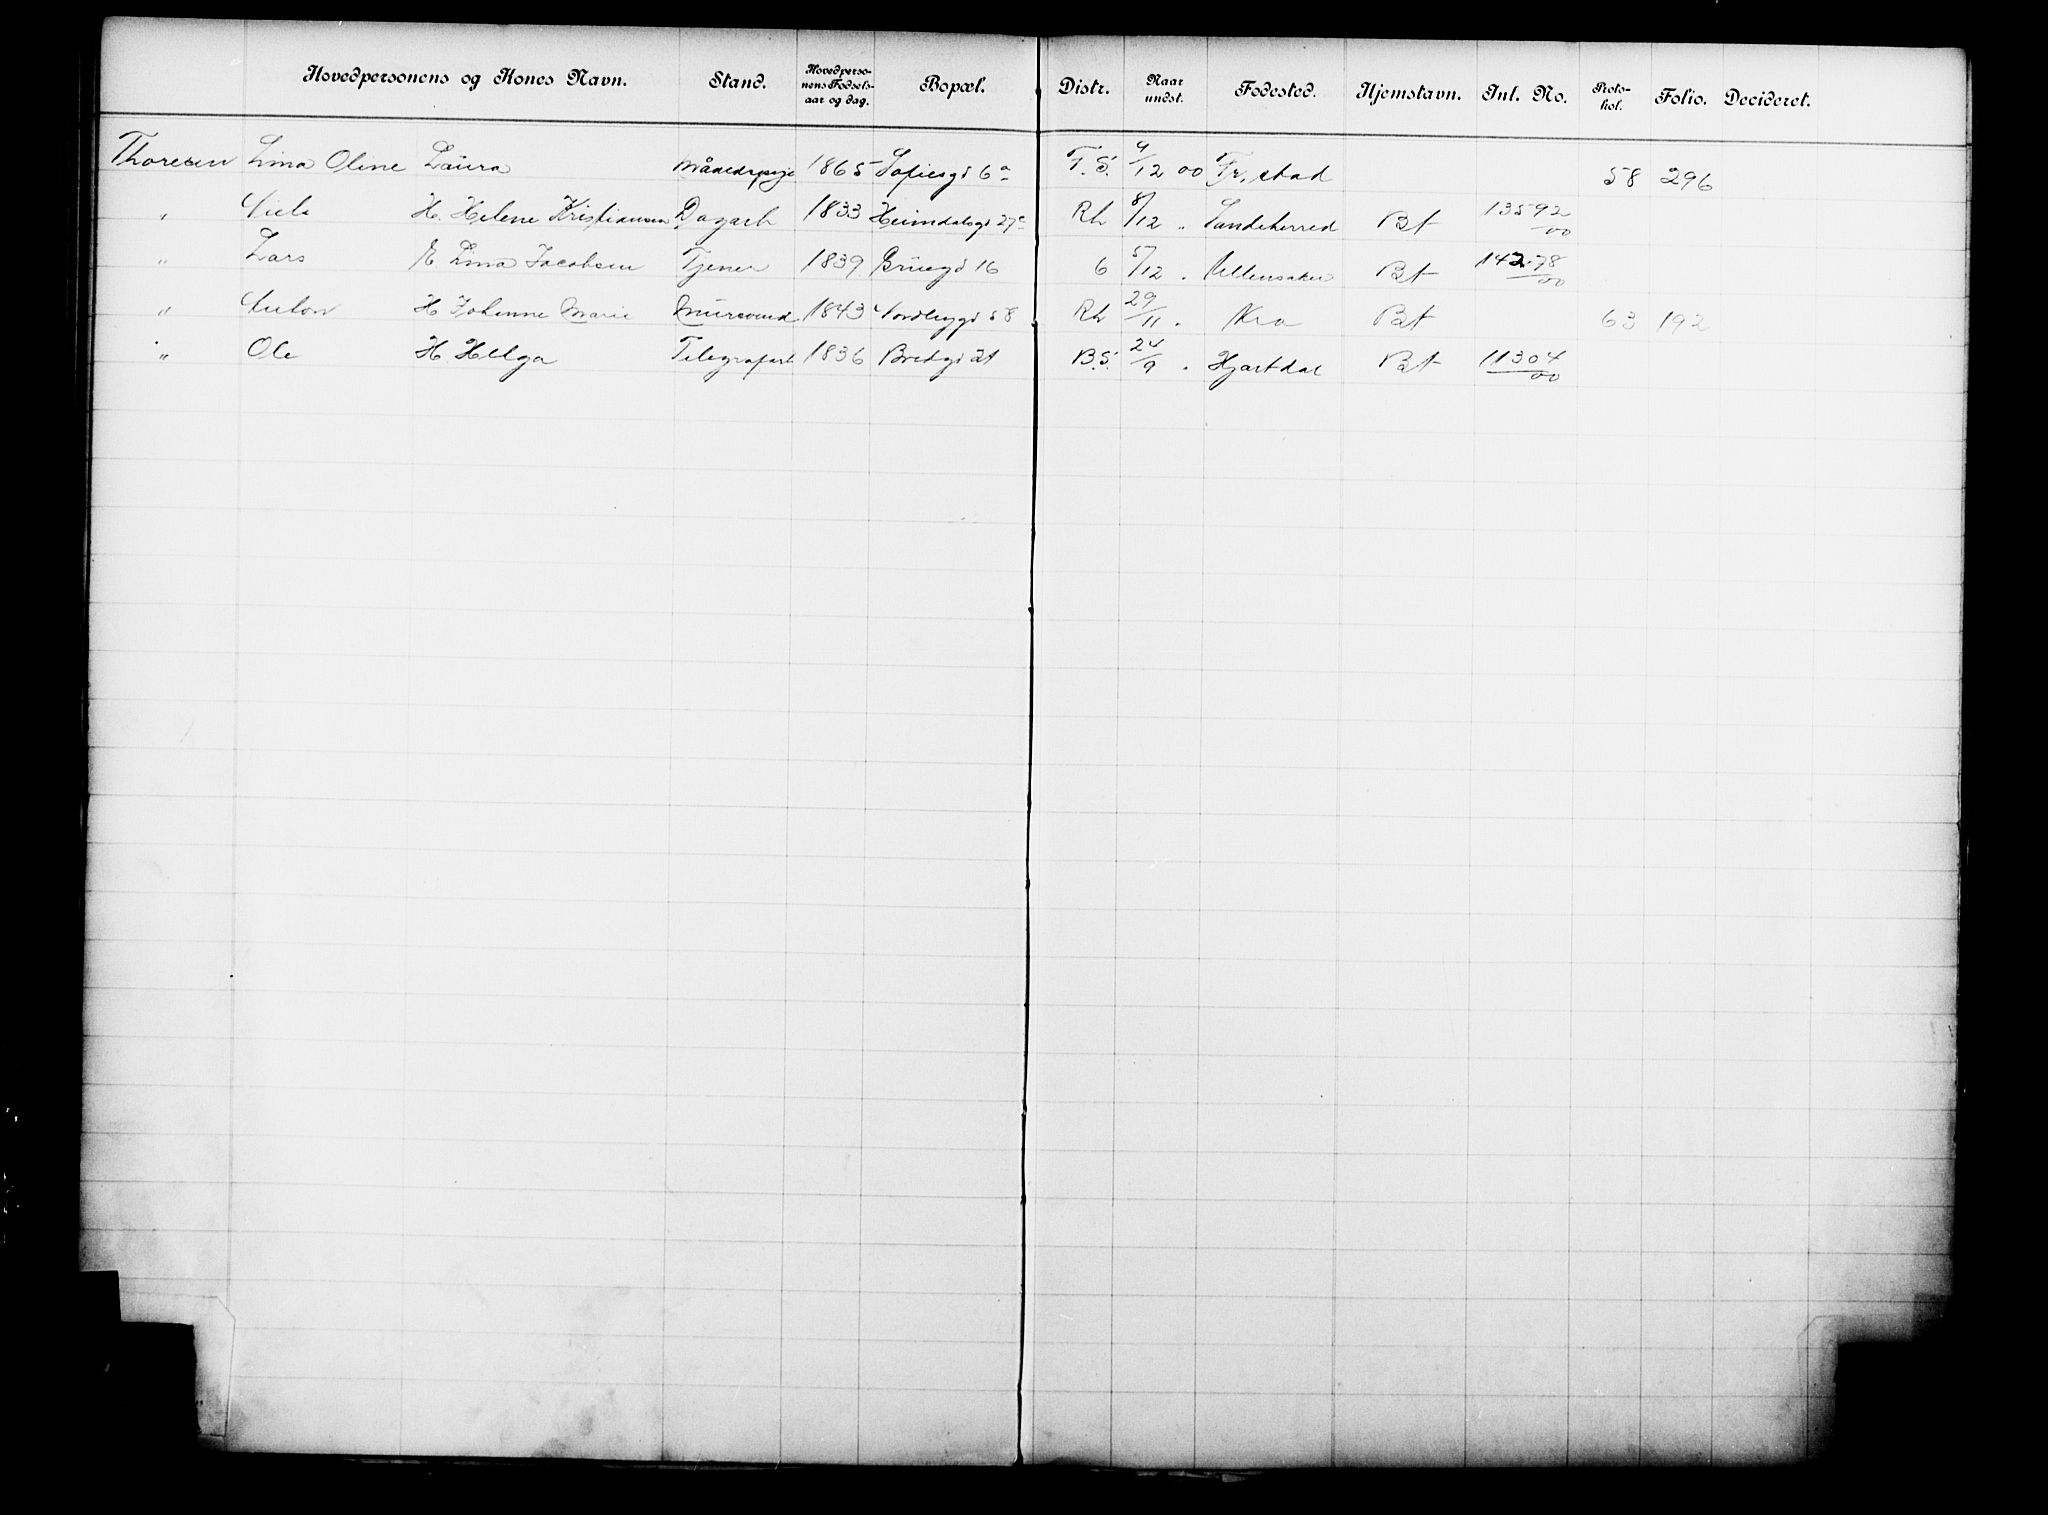 Hovedpersonens og Kones Navn. Stand. Hovedpersonens Fødsels-aar og dag. Bopæl. Distr. Naar undst. Fødested. Hjemstavn. Inl. No. Proto-kol. Folio. Decideret.
Thoresen Lina Oline Laura 1865 Sofiesgd 6a F. S. 4/12 00 Fr. stad 58 296
" Niels H. Helene Kristiansen Dagarb 1833 Heimdalsgd 27c Rh 8/12 " Sandeherred Bt 13592/00
" Lars E. Lina Jacobsen Tjener 1839 Gruegd 16 6 5/12 " Ullensaker Bt 14278/00
" Anton H Johanne Marie Murersvend 1843 Nordbygd 58 Rh 29/11 " Kra Bt 63 192
" Ole H. Helga Telegrafarb 1836 Bredgd 21 B. S. 24/9 " Hjartdal Bt 11304/00